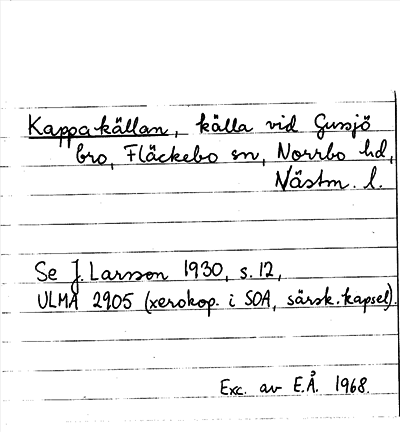 Kappakällan, källa vid Gussjö
bro, Fläckebo sn, Norrbo hd,
Västm. l.
Se J. Larsson 1930, s. 12,
ULMA 2905 (xerokop. i SOA, särsk. kapsel).
Exc. av E.Å. 1968.